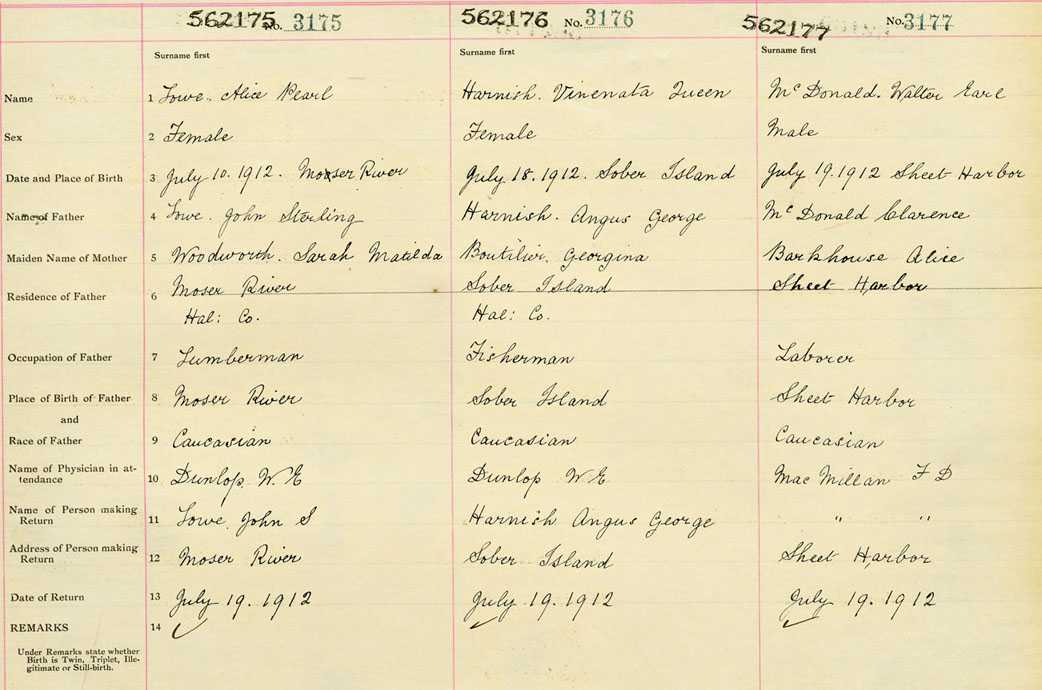 562175 No. 3175 562176 No. 3176 562177 No. 3177
Surname first Surname first Surname first
Name 1 Lowe. Alice Pearl Harnish. Vinenata Queen McDonald. Walter Earl
Sex 2 Female Female Male
Date and Place of Birth 3 July 10. 1912. Moser River July 18. 1912. Sober Island July 19. 1912 Sheet Harbor
Name of Father 4 Lowe. John Sterling Harnish. Angus George McDonald Clarence
Maiden Name of Mother 5 Woodworth. Sarah Matilda Boutilier. Georgina Barkhouse Alice
Residence of Father 6 Moser River Sober Island Sheet Harbor
Hal: Co. Hal: Co.
Occupation of Father 7 Lumberman Fisherman Laborer
Place of Birth of Father 8 Moser River Sober Island Sheet Harbor
and
Race of Father 9 Caucasian Caucasian Caucasian
Name of Physician in at-
tendance 10 Dunlop. W. E Dunlop W E Mac Millan F D
Name of Person making
Return 11 Lowe. John S Harnish Angus George " "
Address of Person making
Return 12 Moser River Sober Island Sheet Harbor
Date of Return 13 July 19. 1912 July 19. 1912 July 19. 1912
REMARKS 14 ✓ ✓ ✓
Under Remarks state whether
Birth is Twin, Triplet, Ille-
gitimate or Still-birth.